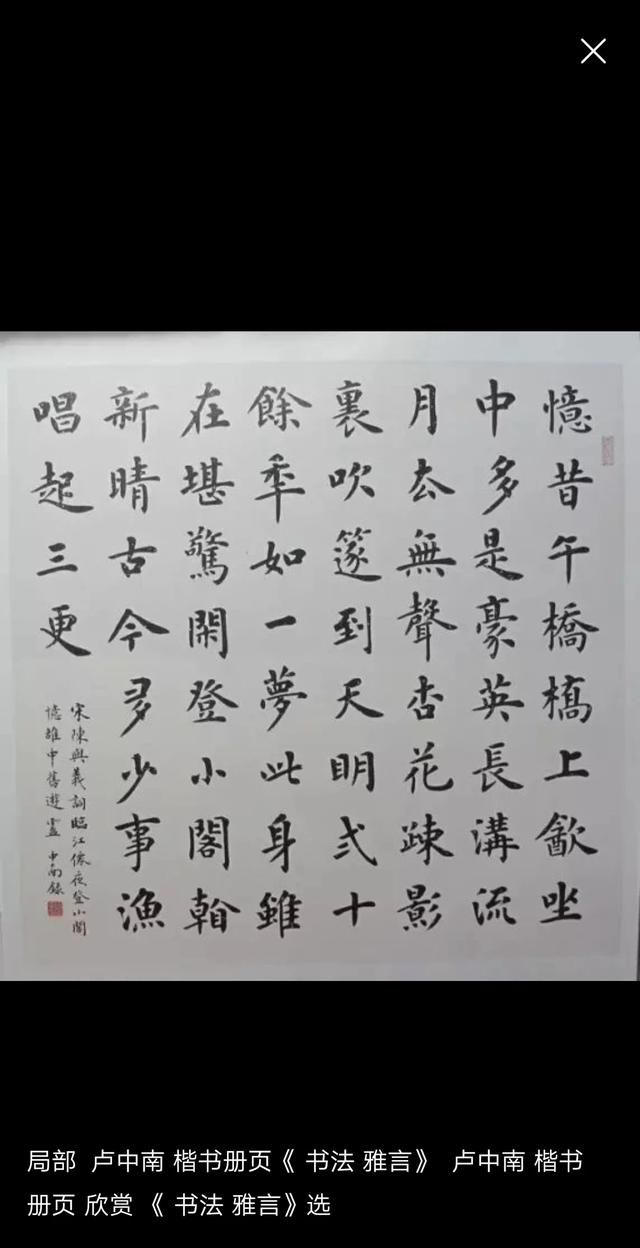 憶昔午橋橋上㱃坐
中多是豪英長溝流
月厺無聲杏花疎影
裏吹篴到天明弍十
餘秊如一夢此身雖
在堪驚閑登小閣看
新晴古今多少事漁
唱起三更
宋陳與義詞臨江僊夜登小閣
憶雒中舊遊 中南錄
局部 卢中南 楷书册页《 书法 雅言》 卢中南 楷书
册页 欣赏 《 书法 雅言》选